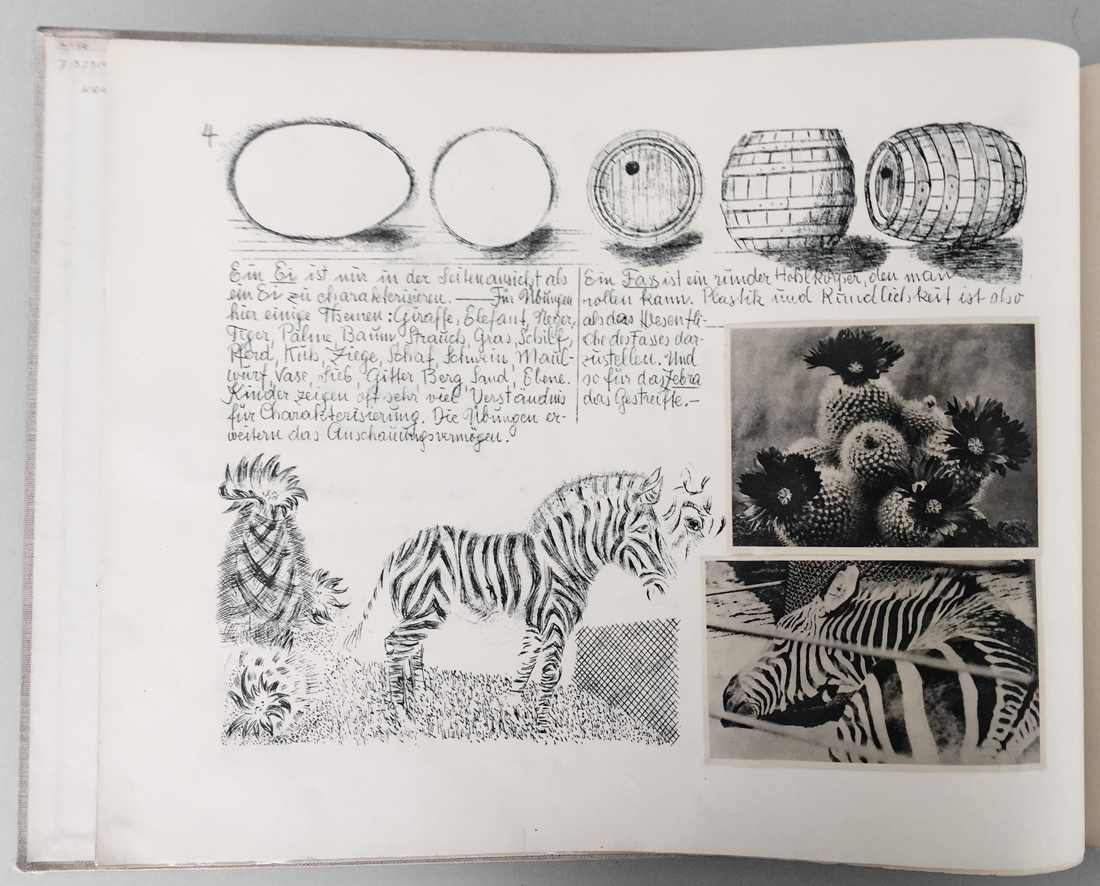 4
Ein Ei ist nur in der Seitenansicht als
ein Ei zu charakterisieren. — Für Übungen
hier einige Themen: Giraffe, Elefant, Neger,
Tiger, Palme, Baum, Strauch, Gras, Schilf,
Pferd, Kuh, Ziege, Schaf, Schwein, Maul-
wurf, Vase, Sieb, Gitter, Berg, Sand, Ebene.
Kinder zeigen oft sehr viel Verständnis
für Charakterisierung. Die Übungen er-
weitern das Anschauungsvermögen.
Ein Fass ist ein runder Hohlkörper, den man
rollen kann. Plastik und Rundlichkeit ist also
als das Wesentli-
che des Fasses dar-
zustellen. Und
so für das Zebra
das Gestreifte.—